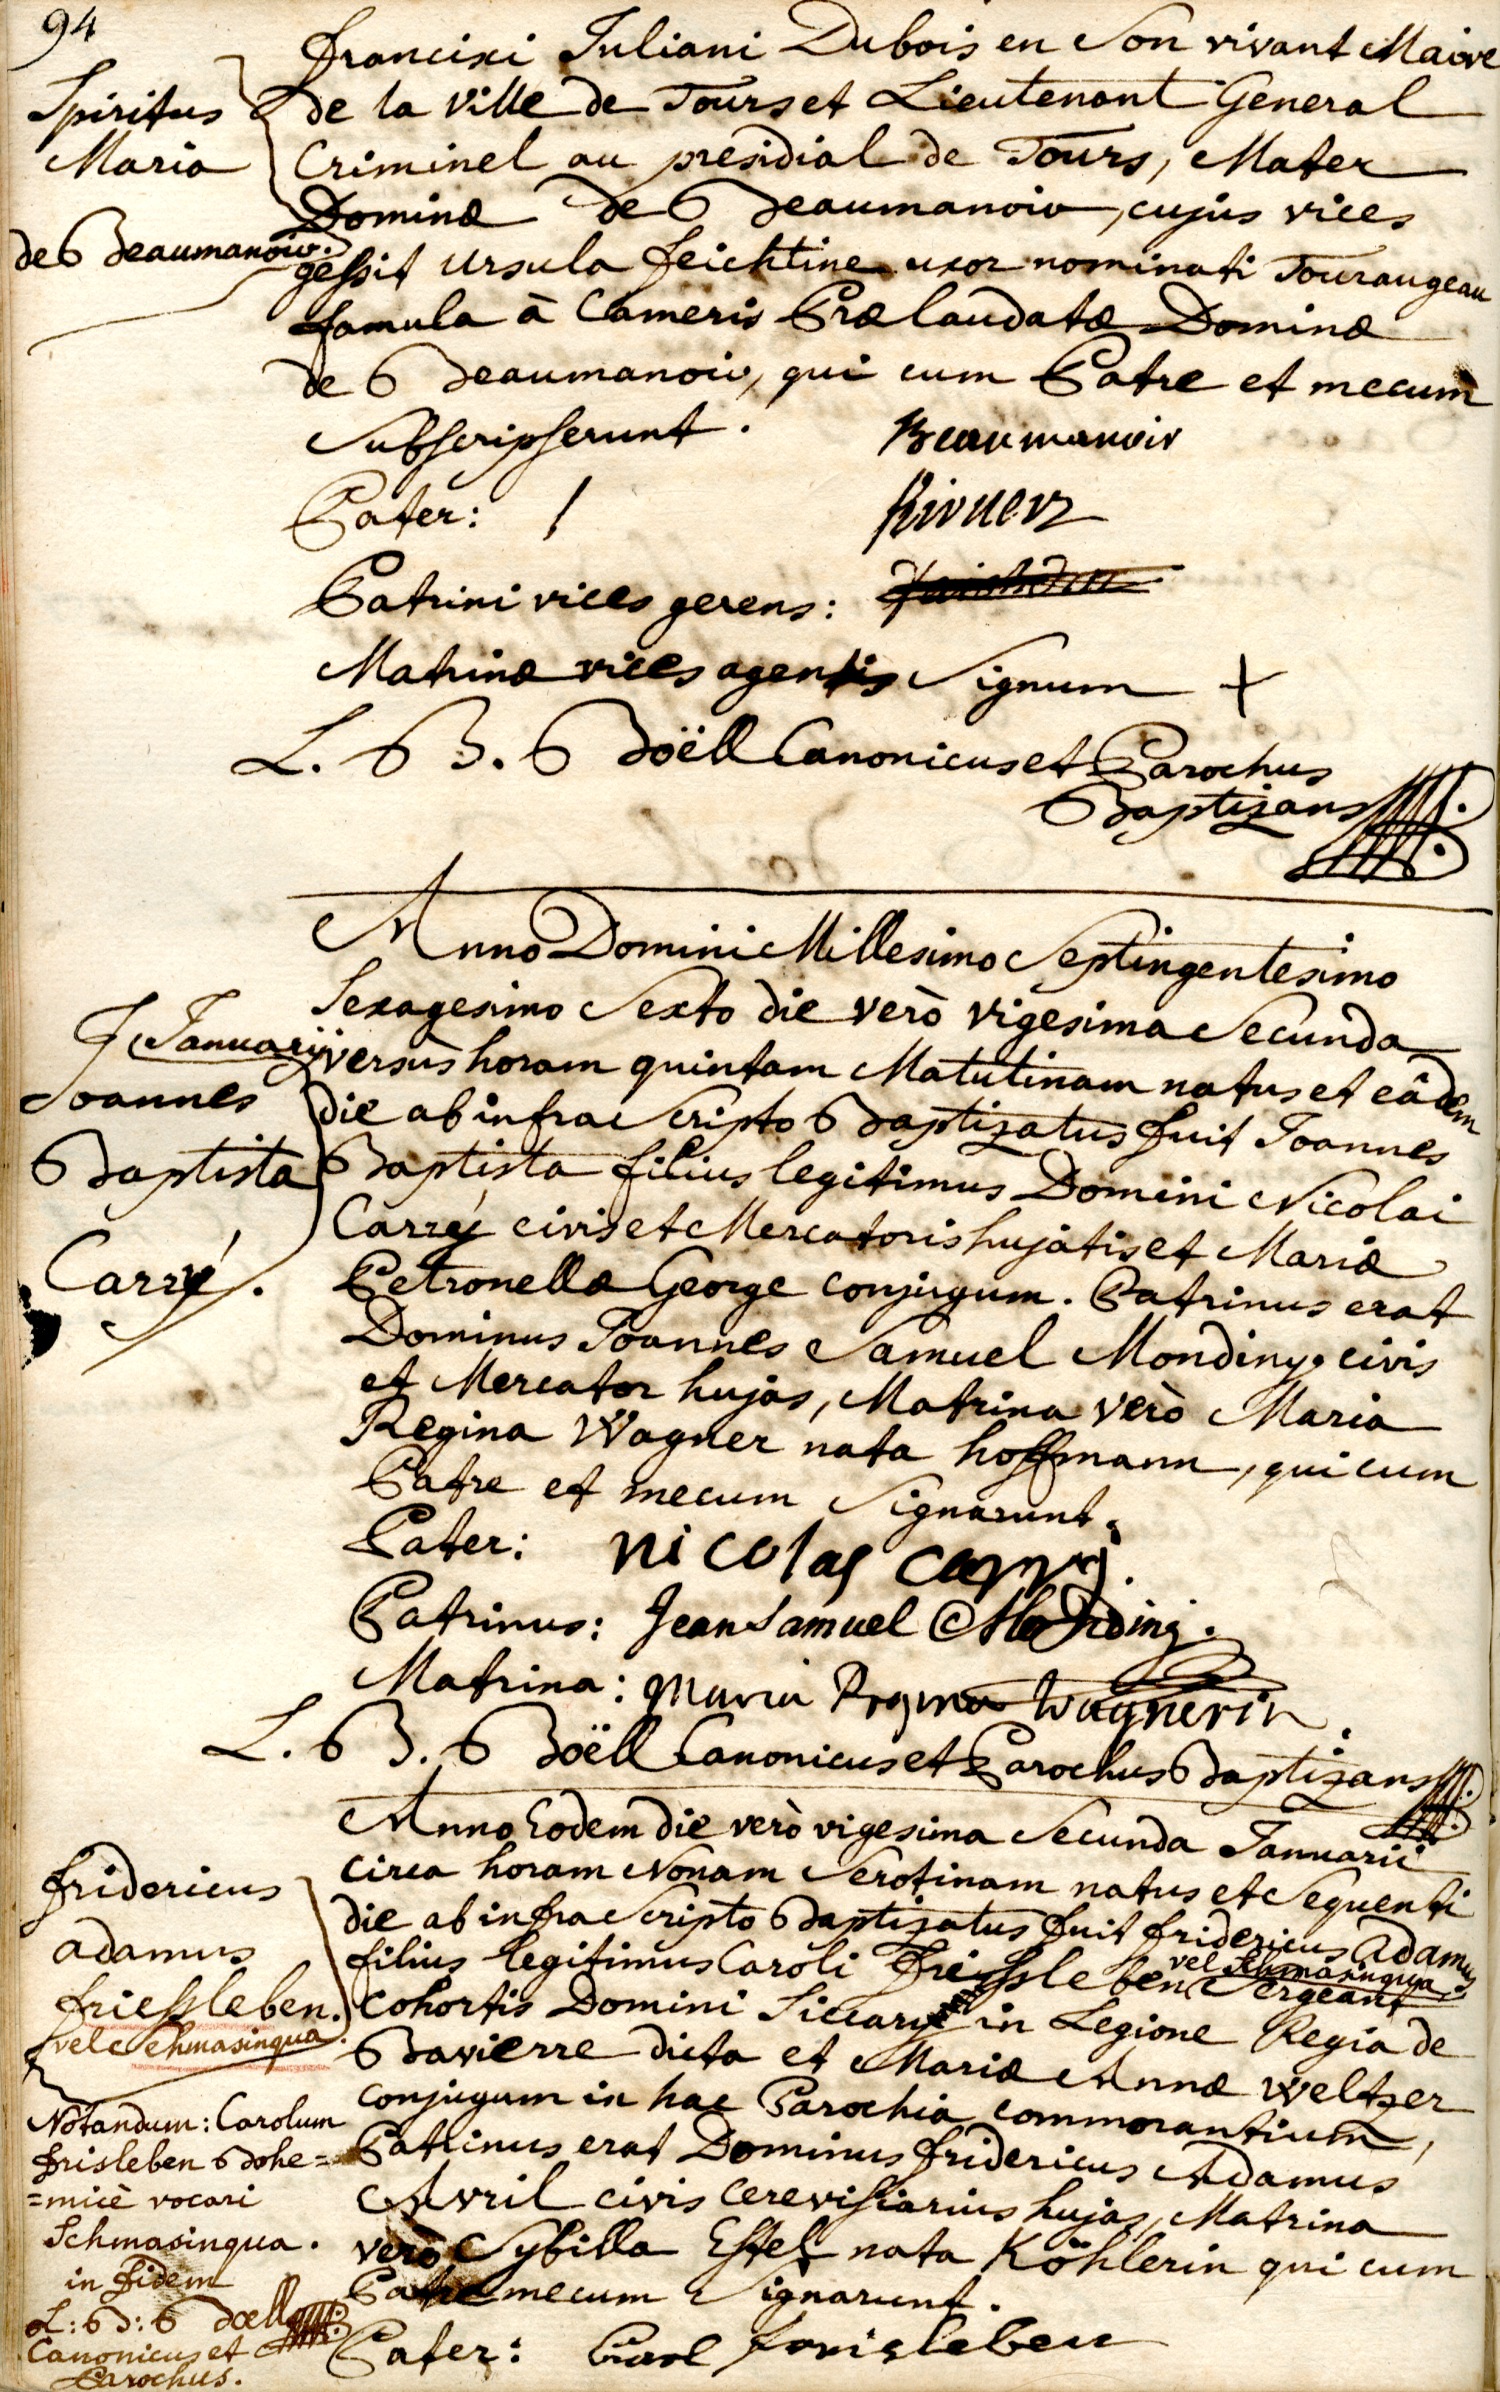 94
Spiritus
Maria
de Beaumanoir.
Francisci Juliani Dubois en son vivant Maire
de la Ville de Tours et Lieutenant General
Criminel au presidial de Tours, Mater
Dominæ de Beaumanoir, cujus vices
gessit Ursula feichtine uxor nominati Tourangeau
famula à Cameris Prælaudatæ Dominæ
de Beaumanoir, qui cum Patre et mecum
Subscripserunt.
Beaumanoir
Pater: /
Patrini vices gerens:
Matrinæ vices agentis Signum +
L. B. Boëll Canonicus et Parochus
Baptizans
Anno Domini Millesimo Septingentesimo
Sexagesimo Sexto die verò vigesima Secunda
J Januarii
versus horam quintam Matutinam natus et eâdem
die ab infra Scripto Baptizatus fuit Joannes
Baptista filius legitimus Domini Nicolai
Carrÿ civis et Mercatoris hujatis et Mariæ
Petronellæ George conjugum. Patrinus erat
Dominus Joannes Samuel Mondiny civis
et Mercator hujas, Matrina verò Maria
Regina Wagner nata hoffmann, qui cum
Patre et mecum Signarunt.
Joannes
Baptista
Carré.
Pater: nicolas carry.
Patrinus: Jean Samuel Monding.
Matrina: Maria Regina Wagnerin
L. B. Boëll Canonicus et Parochus Baptizans
Anno Eodem die verò vigesima Secunda Januarii
circa horam Nonam Serotinam natus et Sequenti
die ab infra Scripto Baptizatus fuit fridericus Adamus
vel Schmasinqua
filius legitimus Caroli Friessleben Sergeant
cohortis Domini Siccary in Legione Regia de
Bavierre dicta et Mariæ Annæ Weltzer
conjugum in hac Parochia commorantium,
Patrinus erat Dominus fridericus Adamus
Avril civis cerevisiarius hujas, Matrina
verò Sybilla Estel nata Köhlerin qui cum
Patre mecum Signarunt.
fridericus
adamus
friessleben.
vel Schmasinqua.
Notandum: Carolum
frisleben Bohe=
=micè vocari
Schmasinqua.
in fidem
L: B: Boell
Canonicus et
Parochus.
Pater: Carl frisleben